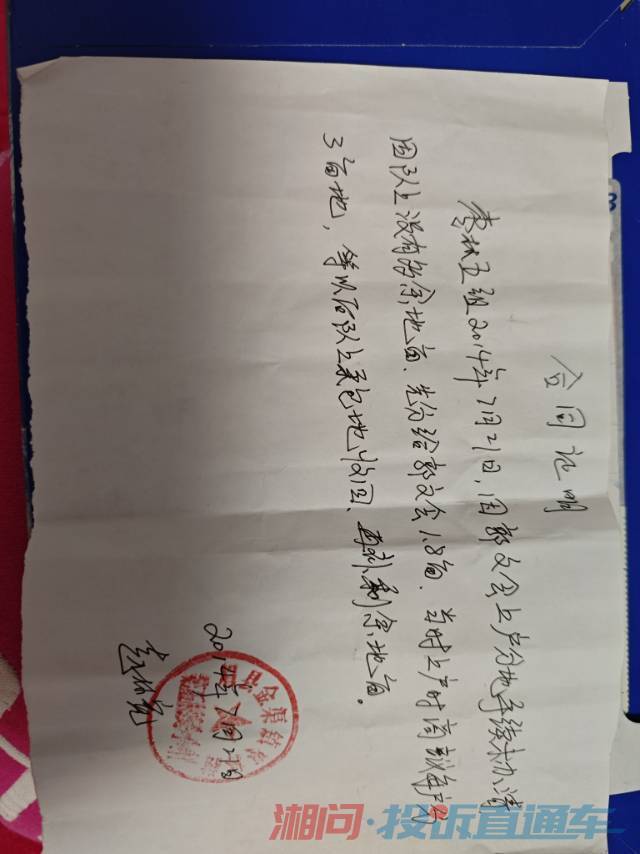 合同证明
李林五组2014年7月21日，因郭文会上户分地手续未办清
因队上没有多余地亩、先分给郭文会1.8亩、当时上户时商议每户分
3亩地，等以后队上承包地收回、再补剩余地亩。
2014年7月21日
湘问·投诉直通车